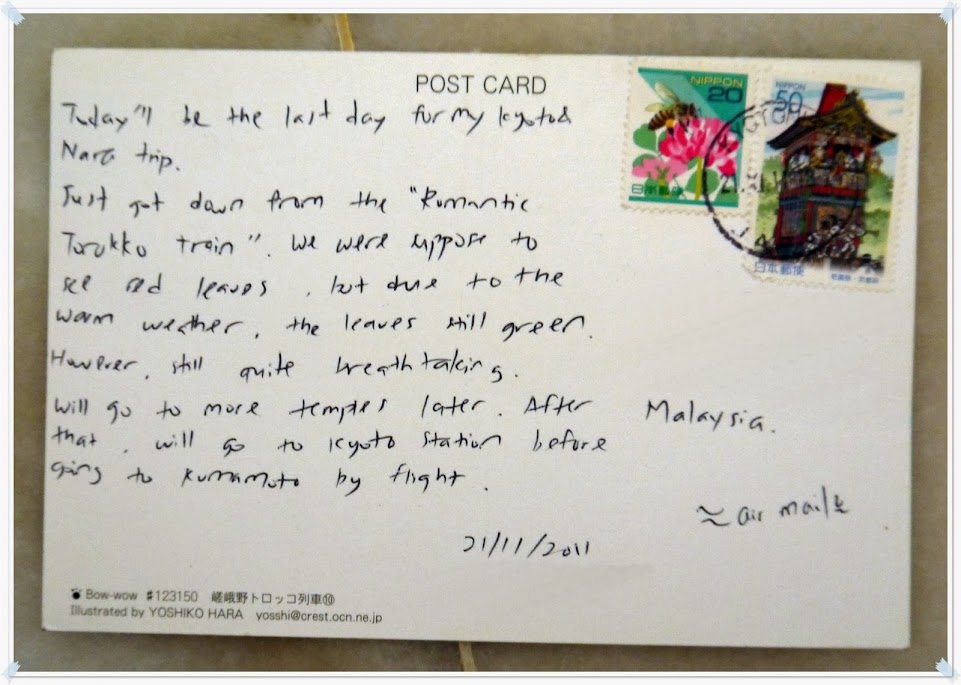 POST CARD
NIPPON
20
日本郵便
NIPPON
50
日本郵便
Today'll be the last day for my kyoto &
Nara trip.
Just got down from the "Romantic
Torokko train". We were suppose to
see red leaves, but due to the
warm weather, the leaves still green.
However, still quite breathtaking.
Will go to more temples later. After
that, will go to kyoto station before
going to kumamoto by flight.
21/11/2011
Malaysia.
≈ air mail ≈
Bow-wow #123150 嵯峨野トロッコ列車⑩
Illustrated by YOSHIKO HARA yosshi@crest.ocn.ne.jp